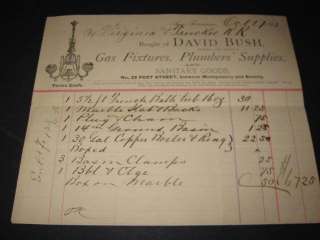 San Francisco, Oct 21
Virginia & Truckee R.R.
Bought of DAVID BUSH,
Gas Fixtures, Plumbers' Supplies,
AND
SANITARY GOODS,
No. 22 POST STREET, between Montgomery and Kearny.
Terms Cash.
1 5½ ft French Bath Tub 30
1 Marble Slab & Back 11 25
1 Plug & Chain 75
1 14 in Ground Basin 2
1 30 Gal Copper Boiler & Ring 22 50
Boxed
3 Basin Clamps 25
1 Bbl & Ctge 75
Box on Marble 50 $67 25